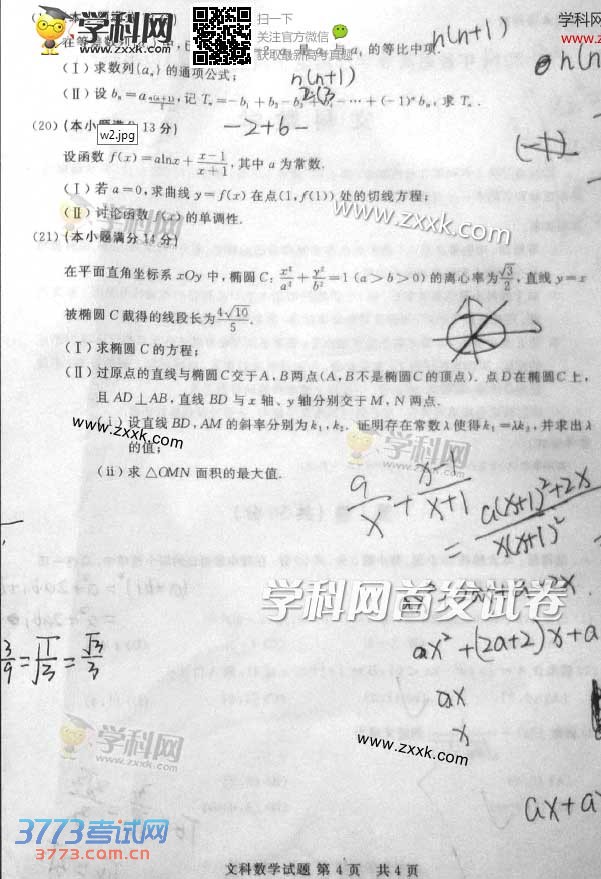 学科网
www.zxxk.com
扫一下
关注官方微信
获取最新高考真题
学科网
www.zx
n(n+1)
的等比中项.
(Ⅰ)求数列{aₙ}的通项公式;
n(n+1)
(Ⅱ)设 bₙ=a_{n(n+1)/2},记 Tₙ=-b₁+b₂-b₃+ -…+(-1)ⁿbₙ,求 Tₙ.
(20)(本小题满分 13 分)
-2+6-
w2.jpg
设函数 f(x)=alnx+\frac{x-1}{x+1},其中 a 为常数.
(Ⅰ)若 a=0,求曲线 y=f(x)在点(1,f(1))处的切线方程;
(Ⅱ)讨论函数 f(x)的单调性.
www.zxxk.com
学科网
(21)(本小题满分 14 分)
在平面直角坐标系 xOy 中,椭圆 C:\frac{x²}{a²}+\frac{y²}{b²}=1(a>b>0)的离心率为\frac{√3}{2},直线 y=x
被椭圆 C 截得的线段长为\frac{4√10}{5}.
(Ⅰ)求椭圆 C 的方程;
(Ⅱ)过原点的直线与椭圆 C 交于 A,B 两点(A,B 不是椭圆 C 的顶点).点 D 在椭圆 C 上,
且 AD⊥AB,直线 BD 与 x 轴、y 轴分别交于 M,N 两点.
www.zxxk.com
(ⅰ)设直线 BD,AM 的斜率分别为 k₁,k₂.证明存在常数 λ 使得 k₁=λk₂,并求出 λ
的值;
学科网
(ii)求 △OMN 面积的最大值.
\frac{a}{x}+\frac{x-1}{x+1}
=\frac{a(x+1)²+2x}{x(x+1)²}
学科网首发试卷
ax²+(2a+2)x+a
\frac{3}{9}=√\frac{1}{3}=\frac{√3}{3}
ax
x
学科网
www.zxxk.com
www.zxxk.com
ax+a
3773考试网
3773.com.cn
文科数学试题 第 4 页 共 4 页